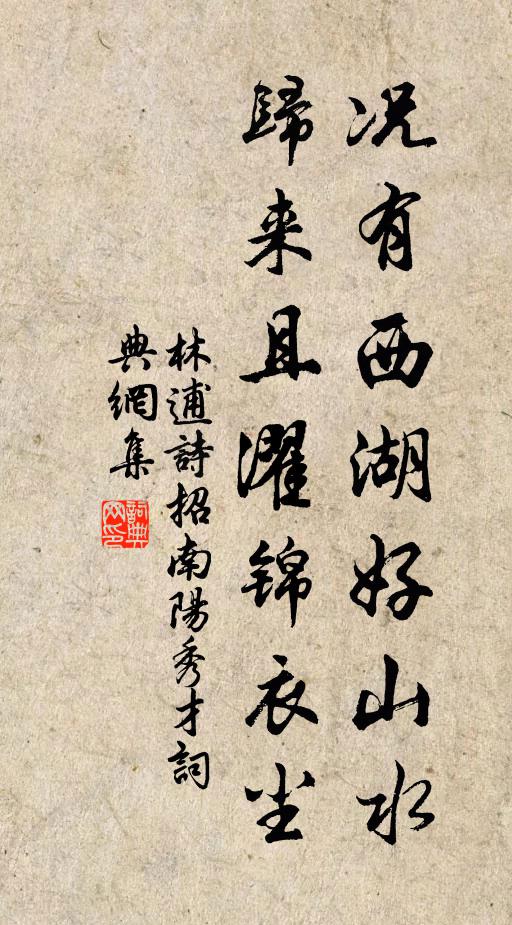 况有西湖好山水
歸来且濯锦衣尘
林逋詩招南陽秀才詞
典網集
詞典網印